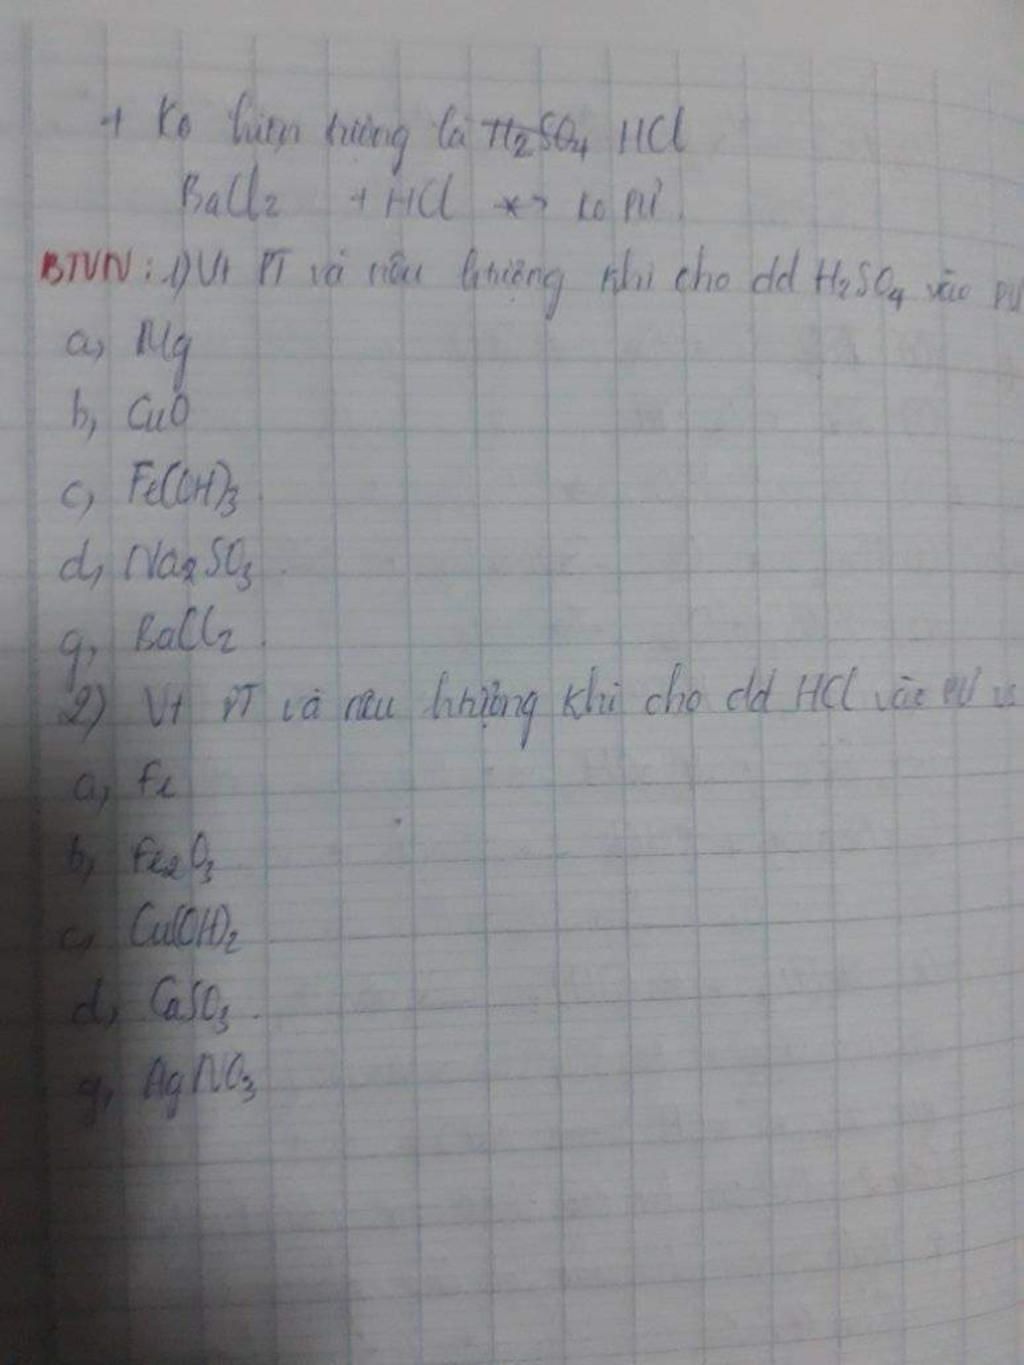 + Ko hiện tượng là H₂SO₄ HCl
BaCl₂ + HCl *→ ko PƯ.
BTVN: 1) Vt PT và nêu htượng khi cho dd H₂SO₄ vào PƯ
a, Mg
b, CuO
c, Fe(OH)₃
d, Na₂SO₃.
g, BaCl₂.
2) Vt PT và nêu htượng khi cho dd HCl vào PƯ
a, Fe
b, Fe₂O₃
c, Cu(OH)₂
d, CaSO₃.
g, AgNO₃